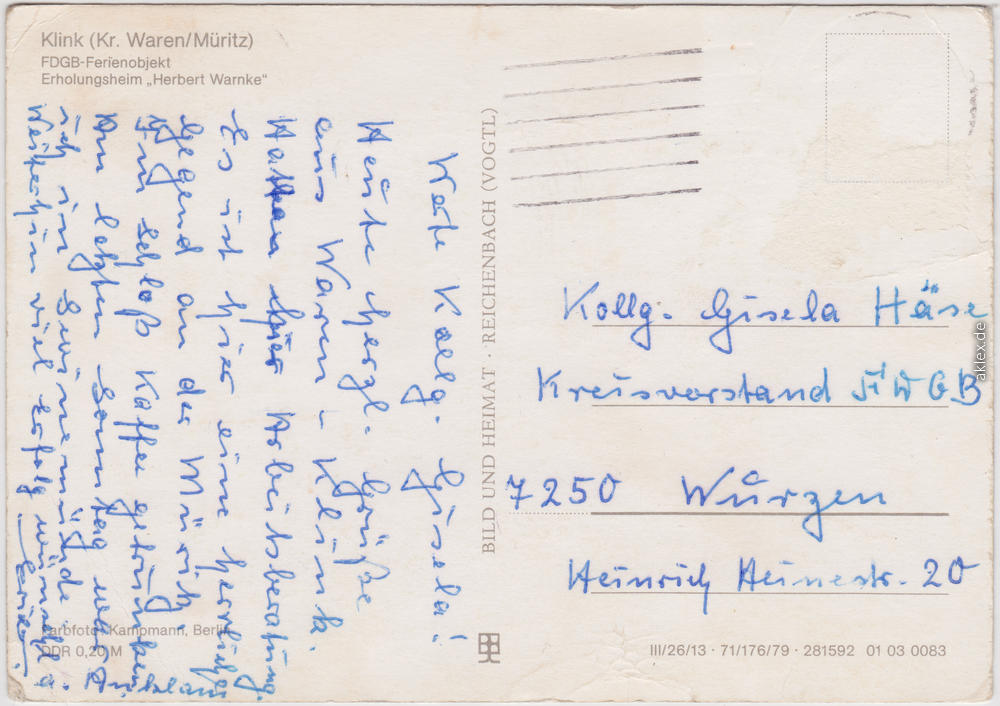 Klink (Kr. Waren/Müritz)
FDGB-Ferienobjekt
Erholungsheim „Herbert Warnke"
Werte Kollg. Gisela!
Heute herzl. Grüße
aus Waren - Klink.
Hatten hier Arbeitsberatung.
Es ist hier eine herrliche
Gegend an der Müritz.
Im Schloß Kaffee getrunken
Am letzten Sonntag war
ich in Swinemünde.
Weiterhin viel Erfolg wünscht
BILD UND HEIMAT · REICHENBACH (VOGTL)
Kollg. Gisela Häse
Kreisvorstand FDGB
7250 Wurzen
Heinrich Heinestr. 20
Farbfoto: Kampmann, Berlin
DDR 0,20 M
III/26/13 · 71/176/79 · 281592 01 03 0083
aklex.de